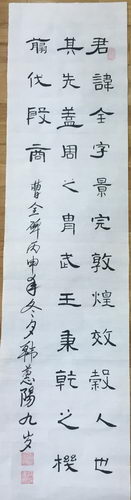 君諱全字景完敦煌效穀人也
其先蓋周之胄武王秉乾之機
翦伐殷商
曹全碑丙申年冬夕韩蕙陽九岁